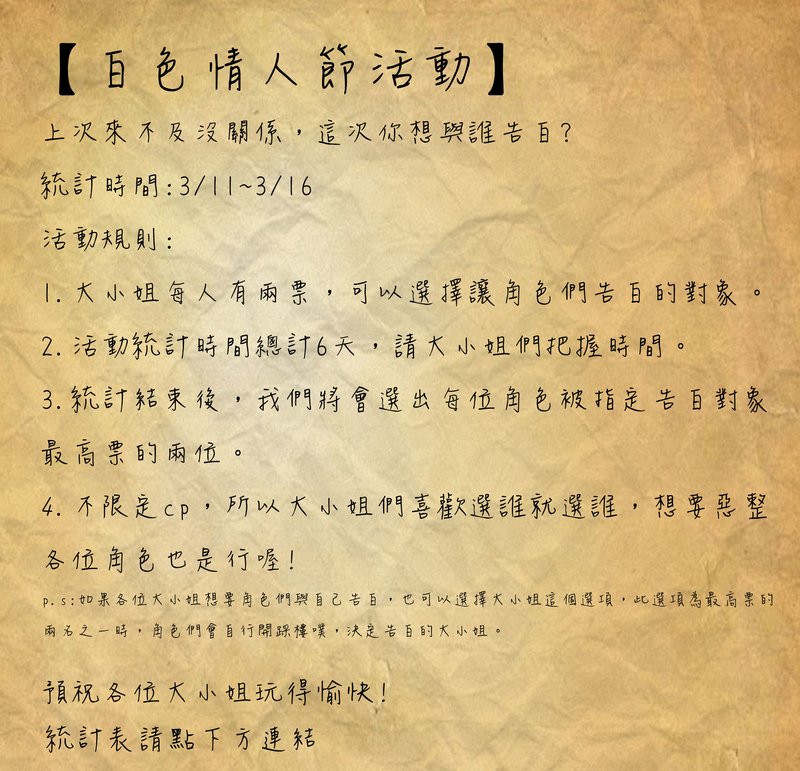 【白色情人節活動】
上次來不及沒關係，這次你想與誰告白？
統計時間:3/11~3/16
活動規則:
1. 大小姐每人有兩票，可以選擇讓角色們告白的對象。
2. 活動統計時間總計6天，請大小姐們把握時間。
3. 統計結束後，我們將會選出每位角色被指定告白對象
最高票的兩位。
4. 不限定cp，所以大小姐們喜歡選誰就選誰，想要惡整
各位角色也是行喔!
p.s:如果各位大小姐想要角色們與自己告白，也可以選擇大小姐這個選項，此選項為最高票的
兩名之一時，角色們會自行開踩樓噗，決定告白的大小姐。
預祝各位大小姐玩得愉快!
統計表請點下方連結